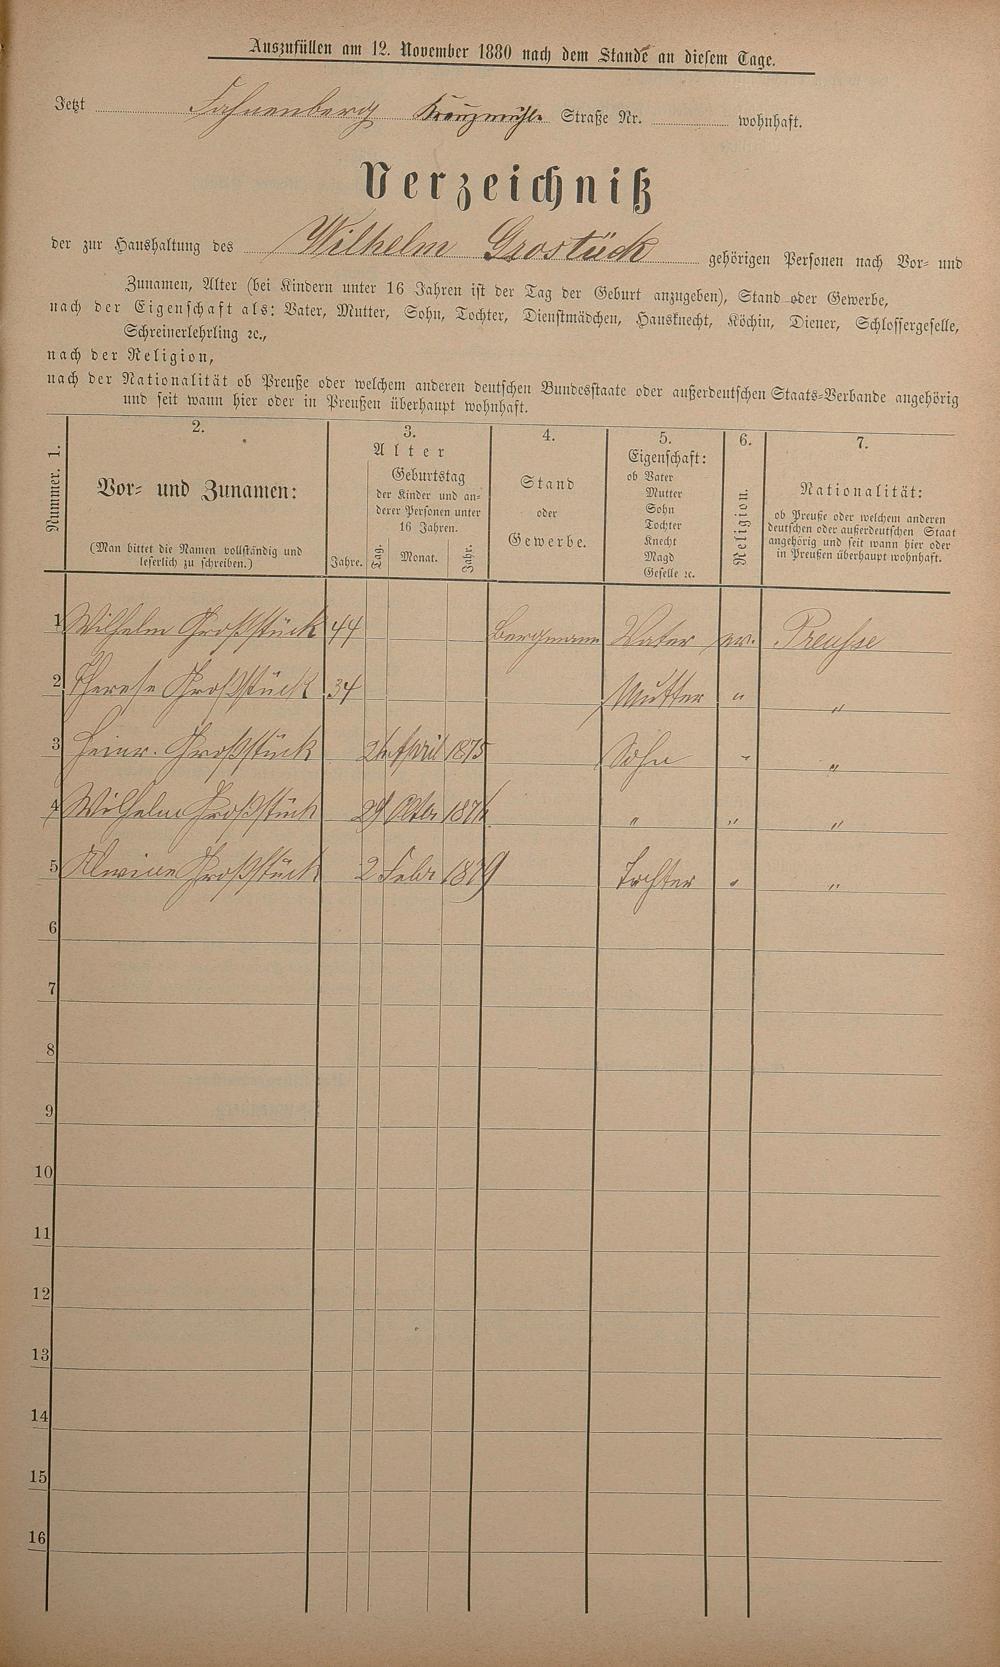 Auszufüllen am 12. November 1880 nach dem Stande an diesem Tage.
Jetzt Fahnenberg Kreuzmühle Straße Nr. wohnhaft.
Verzeichniß
der zur Haushaltung des Wilhelm Grostück gehörigen Personen nach Vor- und
Zunamen, Alter (bei Kindern unter 16 Jahren ist der Tag der Geburt anzugeben), Stand oder Gewerbe,
nach der Eigenschaft als: Vater, Mutter, Sohn, Tochter, Dienstmädchen, Hausknecht, Köchin, Diener, Schlossergeselle,
Schreinerlehrling ꝛc.,
nach der Religion,
nach der Nationalität ob Preuße oder welchem anderen deutschen Bundesstaate oder außerdeutschen Staats-Verbande angehörig
und seit wann hier oder in Preußen überhaupt wohnhaft.
Nummer. 1.
2.
Vor- und Zunamen:
(Man bittet die Namen vollständig und
leserlich zu schreiben.)
3.
Alter
Jahre.
Geburtstag
der Kinder und an-
derer Personen unter
16 Jahren.
Tag. Monat. Jahr.
4.
Stand
oder
Gewerbe.
5.
Eigenschaft:
ob Vater
Mutter
Sohn
Tochter
Knecht
Magd
Geselle ꝛc.
6.
Religion.
7.
Nationalität:
ob Preuße oder welchem anderen
deutschen oder außerdeutschen Staat
angehörig und seit wann hier oder
in Preußen überhaupt wohnhaft.
1 Wilhelm Großstück 44 Bergmann Vater ev. Preusse
2 Therese Großstück 34 Mutter " "
3 Heinr. Großstück April 1875 Sohn " "
4 Wilhelm Großstück Oktbr " " "
5 Alwine Großstück 2 Febr 1879 Tochter " "
6
7
8
9
10
11
12
13
14
15
16